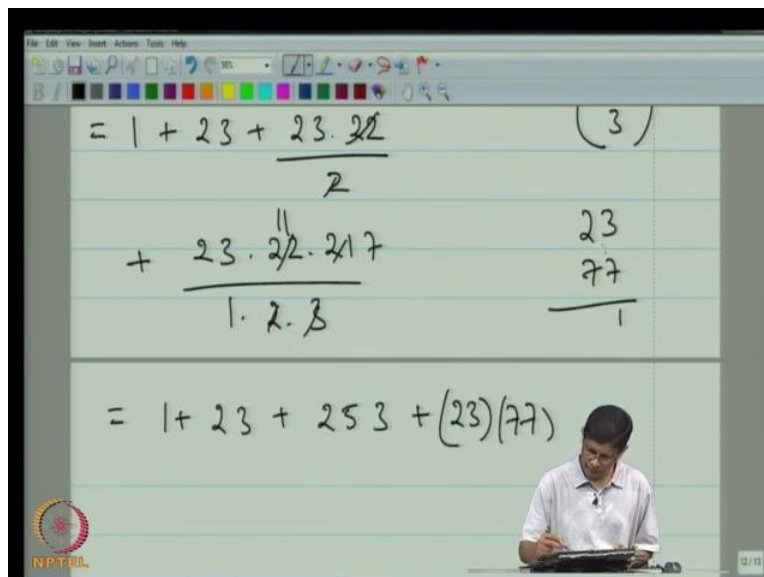 File Edit View Insert Actions Tools Help
= 1 + 23 + 23 . 22 / 2
( 3 )
+ 23 . 22 11 . 21 7 / 1 . 2 . 3
23
77
1
= 1 + 23 + 253 + (23)(77)
NPTEL
12/13